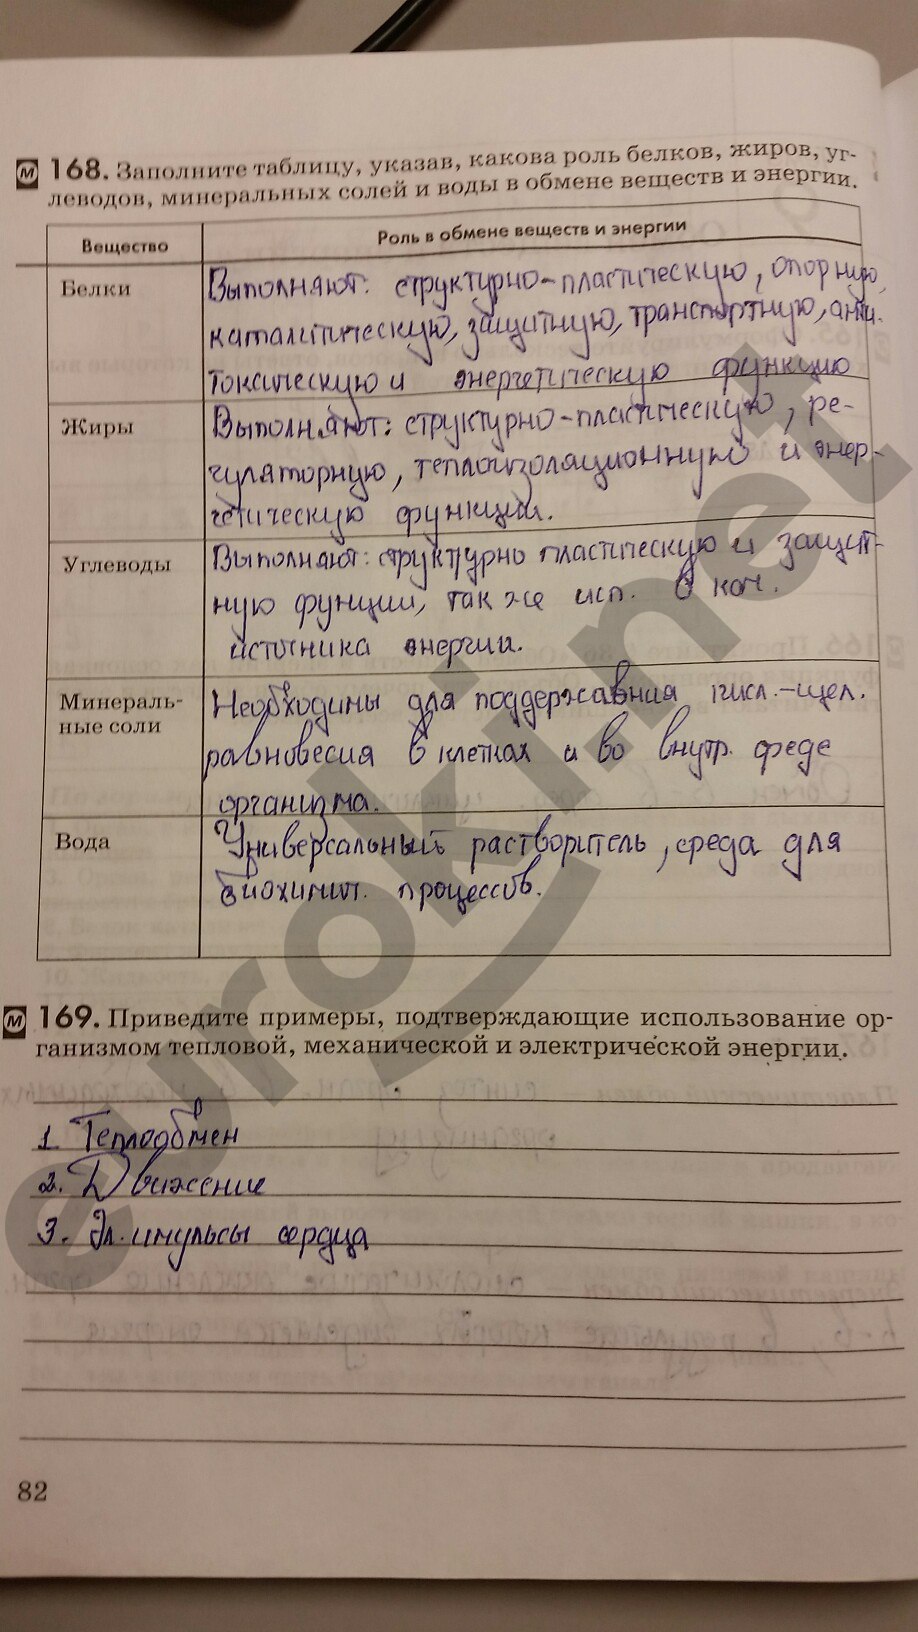 168. Заполните таблицу, указав, какова роль белков, жиров, уг-
леводов, минеральных солей и воды в обмене веществ и энергии.
Вещество
Роль в обмене веществ и энергии
Белки
Выполняют: структурно-пластическую, опорную,
каталитическую, защитную, транспортную, анти-
токсическую и энергетическую функцию
Жиры
Выполняют: структурно-пластическую, ре-
гуляторную, теплоизоляционную и энер-
гетическую функции.
Углеводы
Выполняют: структурно пластическую и защит-
ную фунции, так же исп. в кач.
источника энергии.
Минераль-
ные соли
Необходимы для поддержавния кисл.-щел.
равновесия в клетках и во внутр. среде
организма.
Вода
Универсальный растворитель, среда для
биохимич. процессов.
169. Приведите примеры, подтверждающие использование ор-
ганизмом тепловой, механической и электрической энергии.
1. Теплообмен
2. Движение
3. Эл. импульсы сердца
82
euroki.net